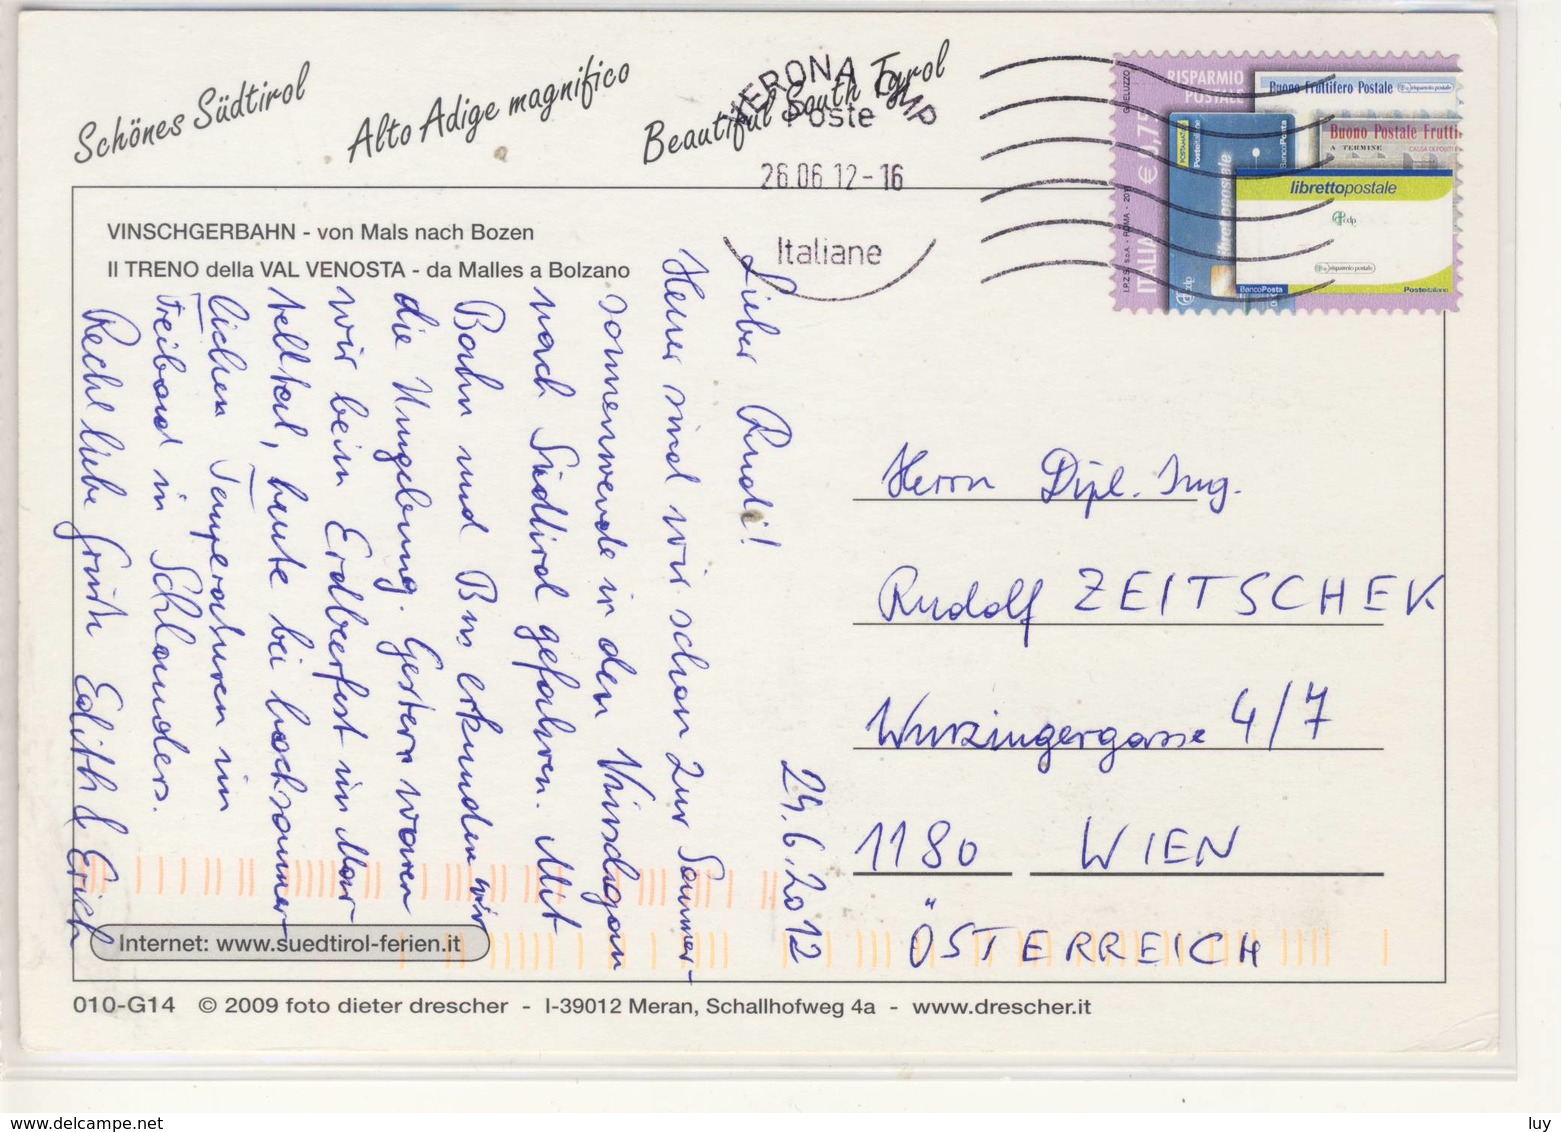 Schönes Südtirol
Alto Adige magnifico
Beautiful South Tyrol
VERONA CMP
Poste
26.06.12-16
Italiane
RISPARMIO
POSTALE
ITALIA € 0,75
I.P.Z.S. S.p.A. - ROMA - 201
Buono Fruttifero Postale
Buono Postale Frutti
A TERMINE
librettopostale
cdp
risparmio postale
BancoPosta
Posteitaliane
VINSCHGERBAHN - von Mals nach Bozen
Il TRENO della VAL VENOSTA - da Malles a Bolzano
24.6.2012
Lieber Rudi!
Heuer sind wir schon zur Sommer-
sonnenwende in den Vinschgau
nach Südtirol gefahren. Mit
Bahn und Bus erkunden wir
die Umgebung. Gestern waren
wir beim Erdbeerfest im Mar-
telltal, heute bei hochsommer-
lichen Temperaturen im
Freibad in Schlanders.
Recht liebe Grüße Edith & Erich
Herrn Dipl. Ing.
Rudolf ZEITSCHEK
Wurzingergasse 4/7
1180 WIEN
ÖSTERREICH
Internet: www.suedtirol-ferien.it
010-G14 © 2009 foto dieter drescher - I-39012 Meran, Schallhofweg 4a - www.drescher.it
www.delcampe.net
luy